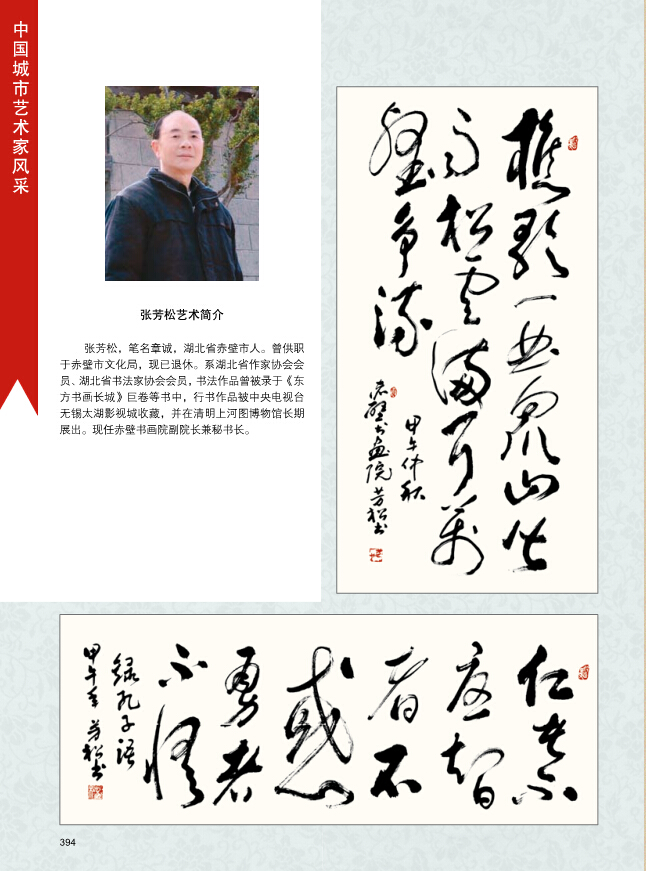 中国城市艺术家风采
张芳松艺术简介
张芳松，笔名章诚，湖北省赤壁市人。曾供职
于赤壁市文化局，现已退休。系湖北省作家协会会
员、湖北省书法家协会会员，书法作品曾被录于《东
方书画长城》巨卷等书中，行书作品被中央电视台
无锡太湖影视城收藏，并在清明上河图博物馆长期
展出。现任赤壁书画院副院长兼秘书长。
樵歌一曲众山皆
响松云满目万
壑争流
甲午仲秋
赤壁书画院芳松书
仁者不
忧智
者不
惑
勇者
不惧
録孔子语
甲午年芳松书
394